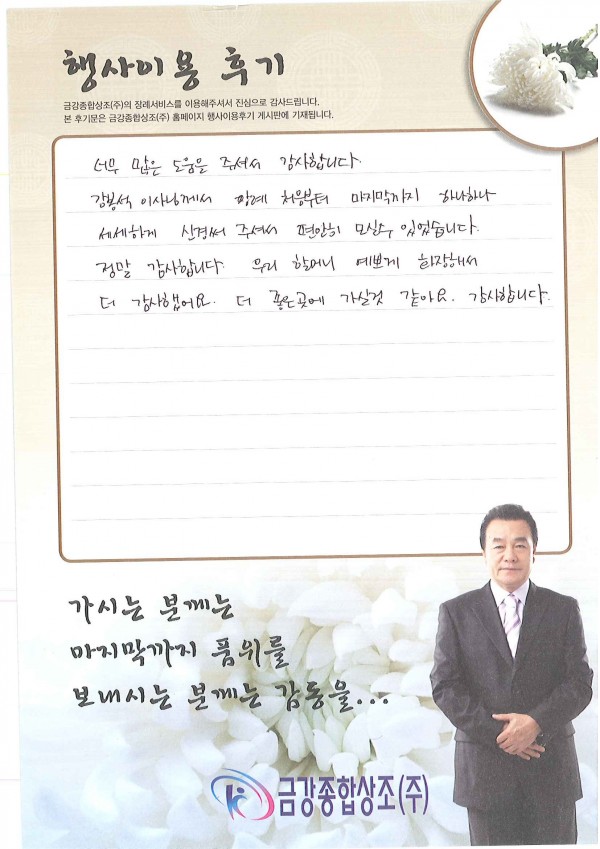 행사이용 후기
금강종합상조(주)의 장례서비스를 이용해주셔서 진심으로 감사드립니다.
본 후기문은 금강종합상조(주) 홈페이지 행사이용후기 게시판에 기재됩니다.
너무 많은 도움을 주셔서 감사합니다.
강봉석 이사님께서 장례 처음부터 마지막까지 하나하나
세세하게 신경써 주셔서 편안히 모실수 있었습니다.
정말 감사합니다. 우리 할머니 예쁘게 화장해서
더 감사했어요. 더 좋은곳에 가실것 같아요. 감사합니다.
가시는 분께는
마지막까지 품위를
보내시는 분께는 감동을...
금강종합상조(주)